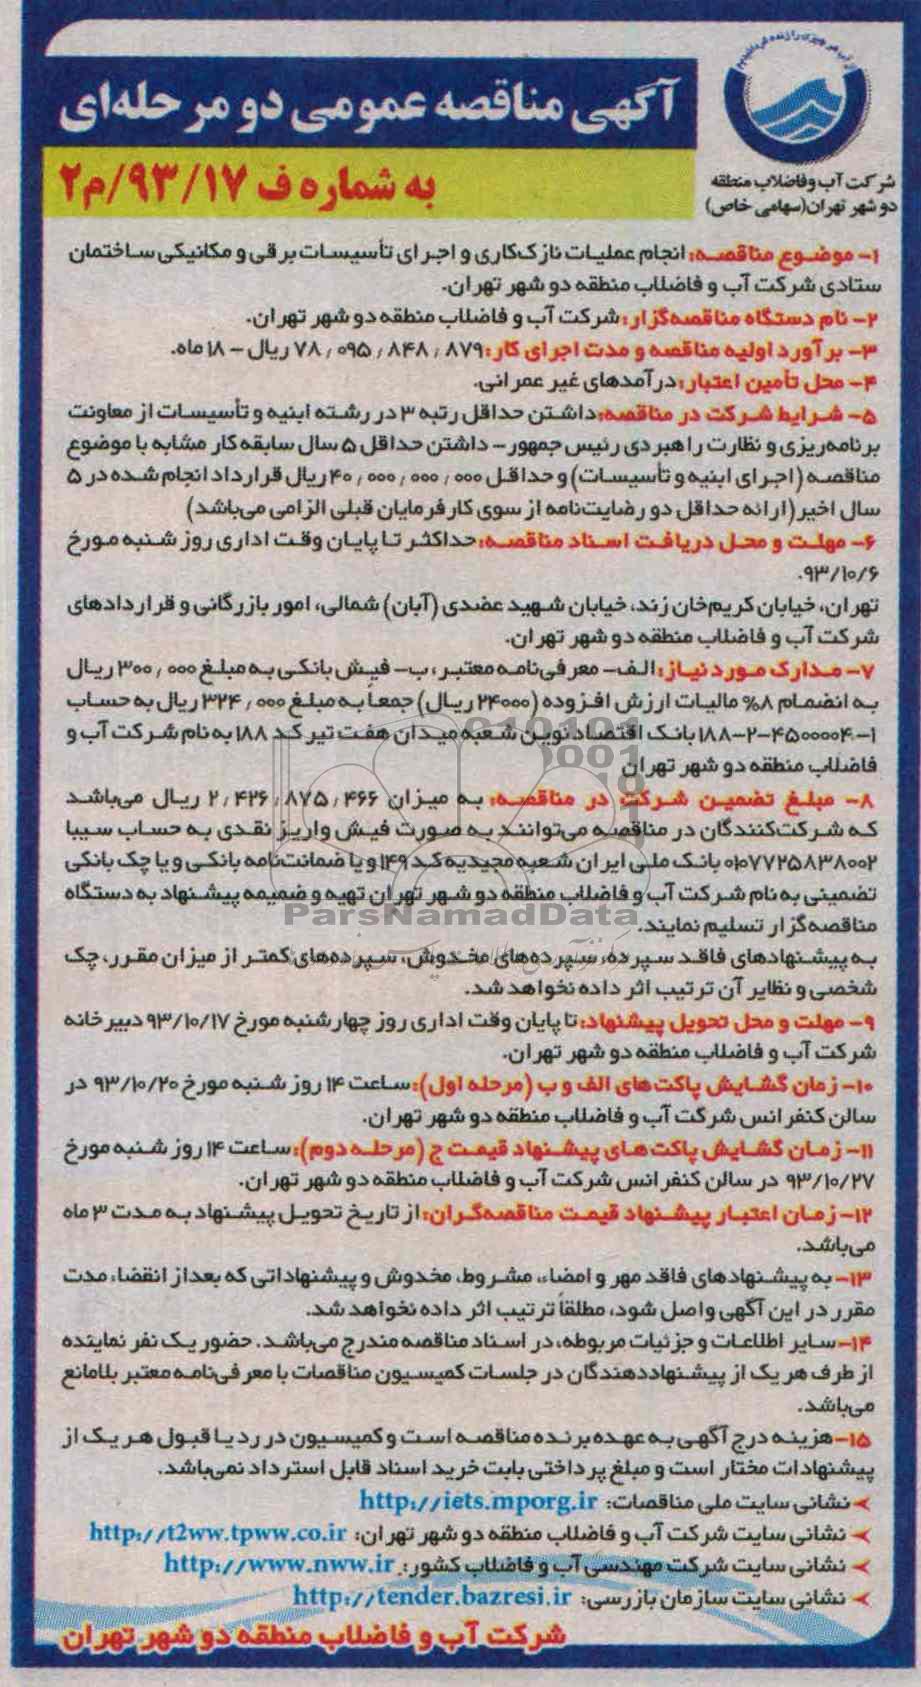 از آب هر چیزی را زنده گردانیدیم
شرکت آب و فاضلاب منطقه
دو شهر تهران (سهامی خاص)
آگهی مناقصه عمومی دو مرحله‌ای
به شماره ف ۹۳/۱۷/م۲
۱- موضوع مناقصه: انجام عملیات نازک‌کاری و اجرای تأسیسات برقی و مکانیکی ساختمان
ستادی شرکت آب و فاضلاب منطقه دو شهر تهران.
۲- نام دستگاه مناقصه‌گزار: شرکت آب و فاضلاب منطقه دو شهر تهران.
۳- برآورد اولیه مناقصه و مدت اجرای کار: ۷۸,۰۹۵,۸۴۸,۸۷۹ ریال - ۱۸ ماه.
۴- محل تأمین اعتبار: درآمدهای غیر عمرانی.
۵- شرایط شرکت در مناقصه: داشتن حداقل رتبه ۳ در رشته ابنیه و تأسیسات از معاونت
برنامه‌ریزی و نظارت راهبردی رئیس جمهور - داشتن حداقل ۵ سال سابقه کار مشابه با موضوع
مناقصه (اجرای ابنیه و تأسیسات) و حداقل ۴۰,۰۰۰,۰۰۰,۰۰۰ ریال قرارداد انجام شده در ۵
سال اخیر (ارائه حداقل دو رضایت‌نامه از سوی کارفرمایان قبلی الزامی می‌باشد)
۶- مهلت و محل دریافت اسناد مناقصه: حداکثر تا پایان وقت اداری روز شنبه مورخ
۹۳/۱۰/۶.
تهران، خیابان کریم‌خان زند، خیابان شهید عضدی (آبان) شمالی، امور بازرگانی و قراردادهای
شرکت آب و فاضلاب منطقه دو شهر تهران.
۷- مدارک مورد نیاز: الف- معرفی‌نامه معتبر، ب- فیش بانکی به مبلغ ۳۰۰,۰۰۰ ریال
به انضمام ۸% مالیات ارزش افزوده (۲۴۰۰۰ ریال) جمعاً به مبلغ ۳۲۴,۰۰۰ ریال به حساب
۱-۴۵۰۰۰۰۴-۲-۱۸۸ بانک اقتصاد نوین شعبه میدان هفت تیر کد ۱۸۸ به نام شرکت آب و
فاضلاب منطقه دو شهر تهران
۸- مبلغ تضمین شرکت در مناقصه: به میزان ۲,۴۲۶,۸۷۵,۴۶۶ ریال می‌باشد
که شرکت‌کنندگان در مناقصه می‌توانند به صورت فیش واریز نقدی به حساب سیبا
۰۱۰۷۷۲۵۸۳۸۰۰۲ بانک ملی ایران شعبه مجیدیه کد ۱۴۹ و یا ضمانت‌نامه بانکی و یا چک بانکی
تضمینی به نام شرکت آب و فاضلاب منطقه دو شهر تهران تهیه و ضمیمه پیشنهاد به دستگاه
ParsNamadData
مناقصه‌گزار تسلیم نمایند.
به پیشنهادهای فاقد سپرده، سپرده‌های مخدوش، سپرده‌های کمتر از میزان مقرر، چک
شخصی و نظایر آن ترتیب اثر داده نخواهد شد.
۹- مهلت و محل تحویل پیشنهاد: تا پایان وقت اداری روز چهارشنبه مورخ ۹۳/۱۰/۱۷ دبیرخانه
شرکت آب و فاضلاب منطقه دو شهر تهران.
۱۰- زمان گشایش پاکت‌های الف و ب (مرحله اول): ساعت ۱۴ روز شنبه مورخ ۹۳/۱۰/۲۰ در
سالن کنفرانس شرکت آب و فاضلاب منطقه دو شهر تهران.
۱۱- زمان گشایش پاکت‌های پیشنهاد قیمت ج (مرحله دوم): ساعت ۱۴ روز شنبه مورخ
۹۳/۱۰/۲۷ در سالن کنفرانس شرکت آب و فاضلاب منطقه دو شهر تهران.
۱۲- زمان اعتبار پیشنهاد قیمت مناقصه‌گران: از تاریخ تحویل پیشنهاد به مدت ۳ ماه
می‌باشد.
۱۳- به پیشنهادهای فاقد مهر و امضاء، مشروط، مخدوش و پیشنهاداتی که بعد از انقضاء مدت
مقرر در این آگهی واصل شود، مطلقاً ترتیب اثر داده نخواهد شد.
۱۴- سایر اطلاعات و جزئیات مربوطه، در اسناد مناقصه مندرج می‌باشد. حضور یک نفر نماینده
از طرف هر یک از پیشنهاددهندگان در جلسات کمیسیون مناقصات با معرفی‌نامه معتبر بلامانع
می‌باشد.
۱۵- هزینه درج آگهی به عهده برنده مناقصه است و کمیسیون در رد یا قبول هر یک از
پیشنهادات مختار است و مبلغ پرداختی بابت خرید اسناد قابل استرداد نمی‌باشد.
نشانی سایت ملی مناقصات: http://iets.mporg.ir
نشانی سایت شرکت آب و فاضلاب منطقه دو شهر تهران: http://t2ww.tpww.co.ir
نشانی سایت شرکت مهندسی آب و فاضلاب کشور: http://www.nww.ir
نشانی سایت سازمان بازرسی: http://tender.bazresi.ir
شرکت آب و فاضلاب منطقه دو شهر تهران